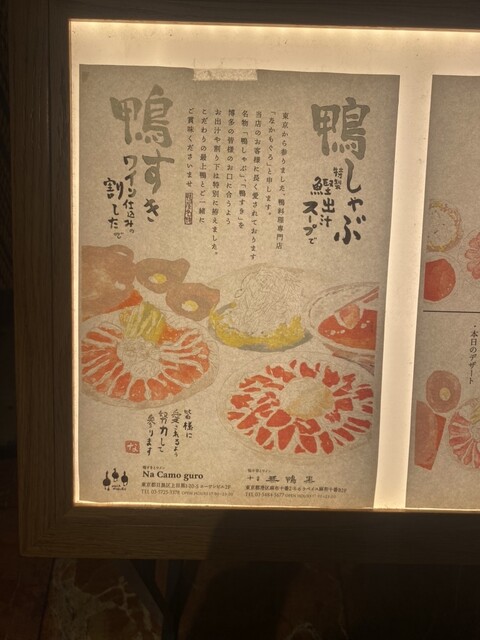 鴨しゃぶ
特製
鰹出汁
スープで
東京から参りました、鴨料理専門店
「なかもぐろ」と申します。
当店のお客様に長く愛されております
名物「鴨しゃぶ」、「鴨すき」を
博多の皆様のお口に合うよう
お出汁や割り下は特別に拵えました。
こだわりの最上鴨とご一緒に
ご賞味くださいませ
鴨すき
ワイン仕込みの
割したで
皆様に
愛されるよう
努力して
参ります
Na Camo guro
・本日のデザート